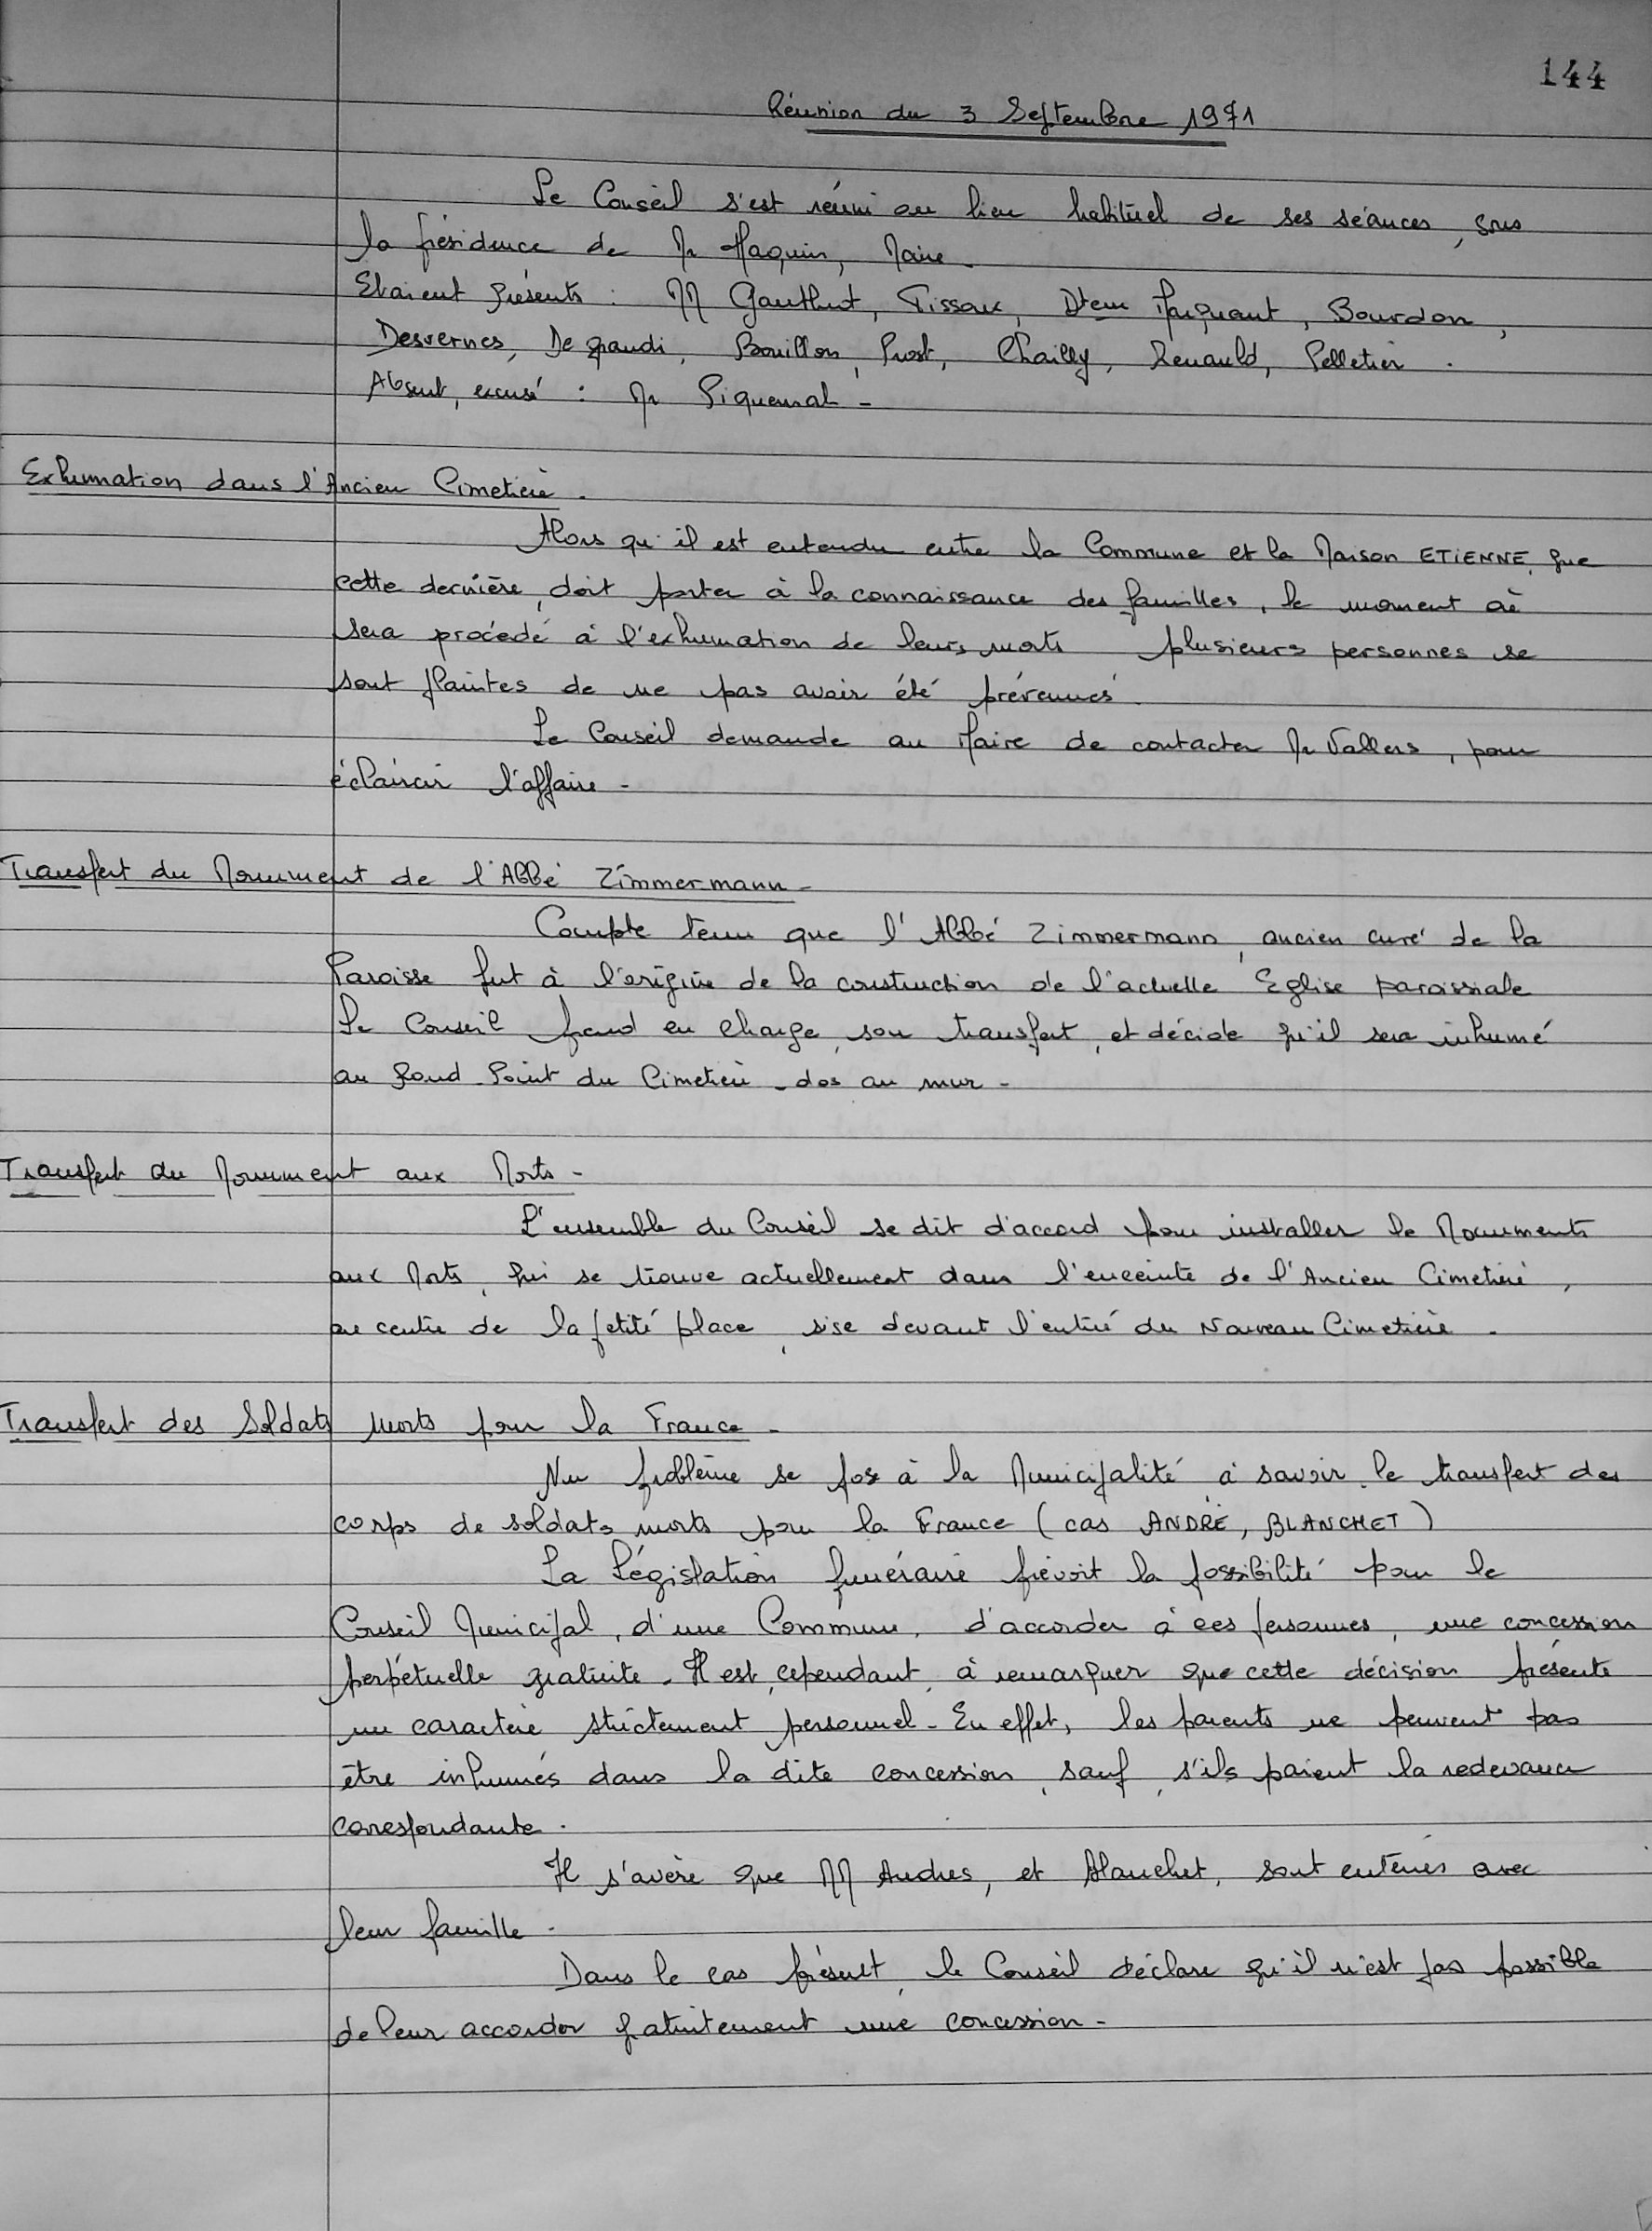 144
Réunion du 3 Septembre 1971
Le Conseil s'est réuni au lieu habituel de ses séances, sous
la présidence de Mr Haquin, Maire.
Etaient présents : MM Gauthert, Tissoux, Dteur Marquant, Bourdon,
Desvernes, De grandi, Bouillon, Prost, Chailly, Renauld, Pelletier.
Absent, excusé : Mr Piquemal -
Exhumation dans l'Ancien Cimetière.
Alors qu'il est entendu entre la Commune et la Maison ETIENNE, que
cette dernière, doit porter à la connaissance des familles, le moment où
sera procédé à l'exhumation de leurs morts plusieurs personnes se
sont plaintes de ne pas avoir été prévenues.
Le Conseil demande au Maire de contacter Mr Vallers, pour
éclaircir l'affaire -
Transfert du Monument de l'Abbé Zimmermann -
Compte tenu que l'Abbé Zimmermann, ancien curé de la
Paroisse fut à l'origine de la construction de l'actuelle Eglise paroissiale
Le Conseil prend en charge, son transfert, et décide qu'il sera inhumé
au Rond-Point du Cimetière - dos au mur -
Transfert du Monument aux Morts -
L'ensemble du Conseil se dit d'accord pour installer le Monuments
aux Morts, qui se trouve actuellement dans l'enceinte de l'Ancien Cimetière,
au centre de la petite place, sise devant l'entrée du Nouveau Cimetière.
Transfert des Soldats Morts pour la France -
Un problème se pose à la Municipalité à savoir, le transfert des
corps de soldats morts pour la France (cas ANDRE, BLANCHET)
La Législation funéraire prévoit la possibilité pour le
Conseil Municipal, d'une Commune, d'accorder à ces personnes, une concession
perpétuelle gratuite. Il est, cependant, à remarquer que cette décision présente
un caractère strictement personnel. En effet, les parents ne peuvent pas
être inhumés dans la dite concession, sauf, s'ils paient la redevance
correspondante.
Il s'avère que MM Andres, et Blanchet, sont enterrés avec
leur famille.
Dans le cas présent, le Conseil déclare qu'il n'est pas possible
de leur accorder gratuitement une concession -